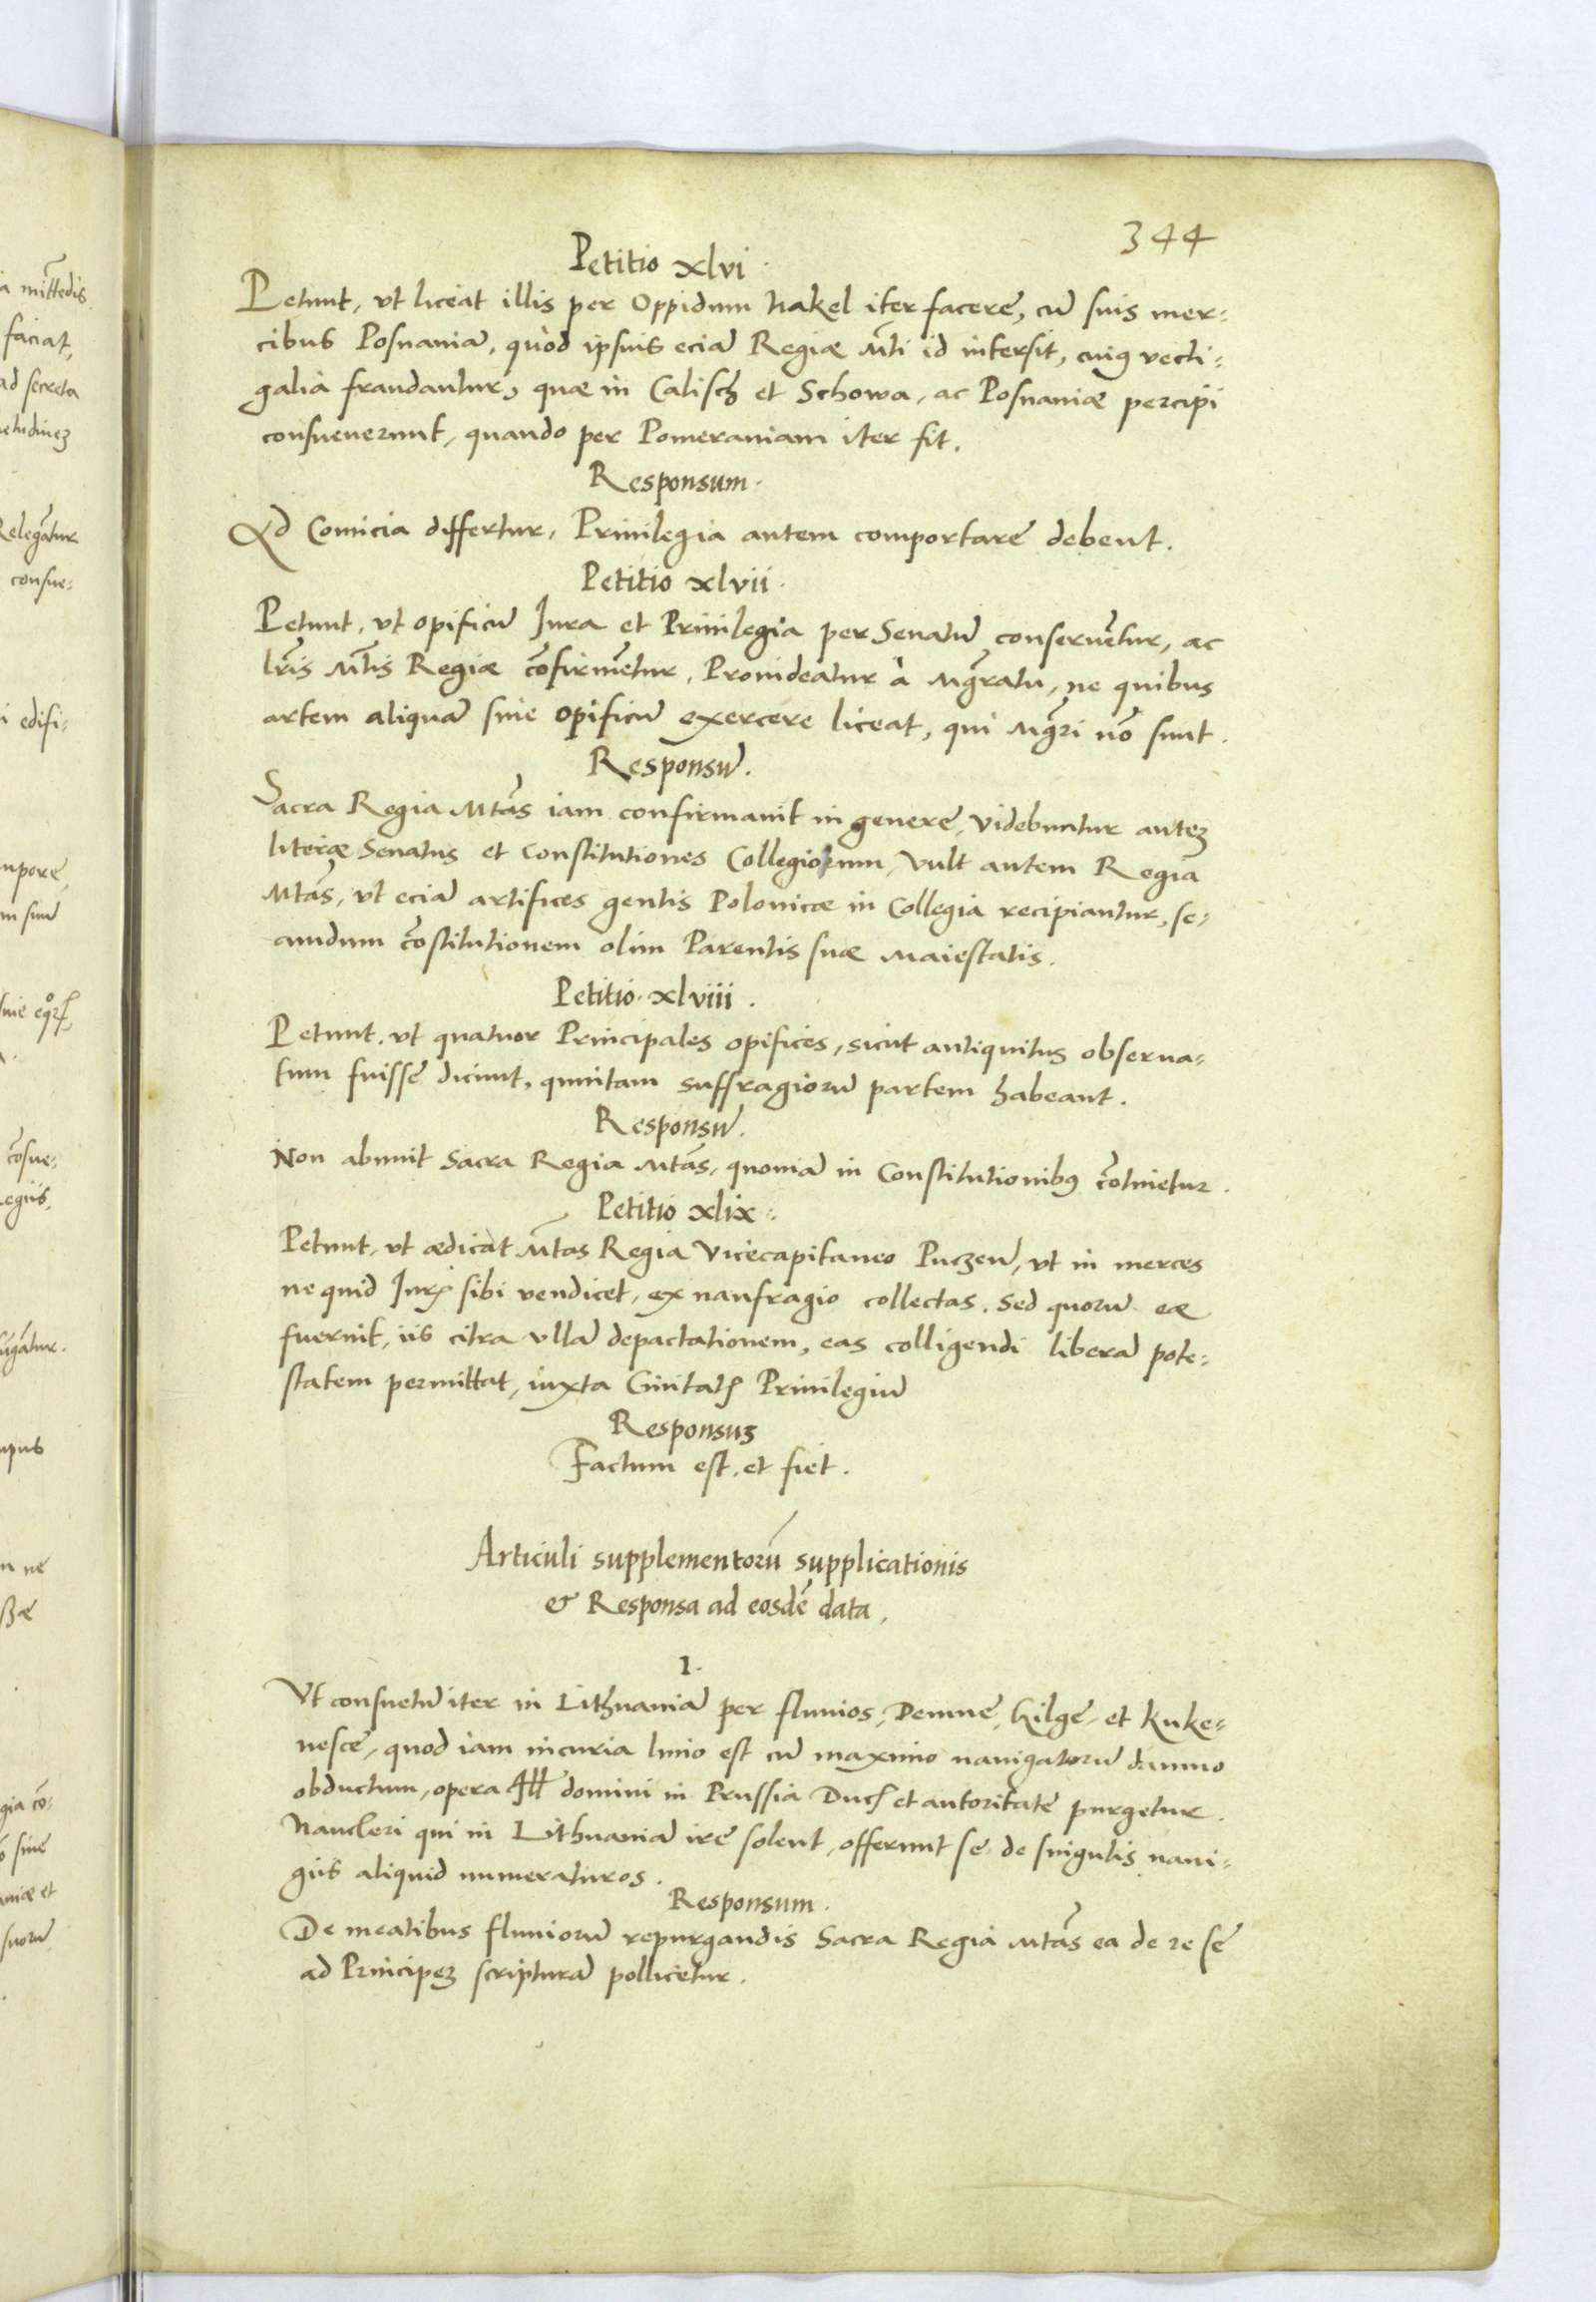 344
Petitio xlvi.
Petunt, vt liceat illis per Oppidum Nakel iter facere, cũ suis mer=
cibus Posnaniã, quòd ipsius eciã Regiæ Mti id intersit, cuiq vecti=
galia fraudantur, quæ in Calisch et Schowa, ac Posnaniæ percipi
consueuerunt, quando per Pomeraniam iter fit.
Responsum.
Ad Comicia differtur, Priuilegia autem comportare debent.
Petitio xlvii.
Petunt, vt opificũ Jura et Priuilegia per Senatũ conseruẽtur, ac
lr̃is Mt̃is Regiæ cõfirmẽtur, Prouideatur à Mgr̃atu, ne quibus
artem aliquã siue opificũ exercere liceat, qui Mgr̃i nõ sunt.
Responsũ.
Sacra Regia Mtãs iam confirmauit in genere, videbuntur autẽ
literæ Senatus et Constitutiones Collegiorum, Vult autem Regia
Mtãs, vt eciã artifices gentis Polonicæ in Collegia recipiantur, se=
cundum cõstitutionem olim Parentis suæ Maiestatis.
Petitio xlviii.
Petunt, vt quatuor Principales opifices, sicut antiquitus obserua=
tum fuisse dicunt, quintam suffragiorũ partem habeant.
Responsũ.
Non abnuit Sacra Regia Mtãs, quoniã in Constitutionibꝯ cõtinetur.
Petitio xlix.
Petunt, vt ædicat Mt̃as Regia Vicecapitaneo Puczeñ, vt in merces
ne quid Jurꝭ sibi vendicet, ex naufragio collectas. Sed quorũ eæ
fuerint, iis citra vllã depactationem, eas colligendi liberã pote=
statem permittat, iuxta Ciuitatꝭ Priuilegiũ
Responsuꝫ
Factum est, et fiet.
Articuli supplementorũ supplicationis
& Responsa ad eosdẽ data,
1.
Vt consuetũ iter in Lithuaniã per fluuios, Demne, Gilge, et Kuke=
nesce, quod iam incuria limo est cũ maximo nauigatorũ damno
obductum, opera Ill domini in Prussia Ducꝭ et autoritate purgetur.
Naucleri qui in Lithuaniã ire solent, offerunt se de singulis naui=
giis aliquid numeraturos.
Responsum.
De meatibus fluuiorũ repurgandis Sacra Regia Mtãs ea de re se
ad Principeꝫ scripturã pollicetur.